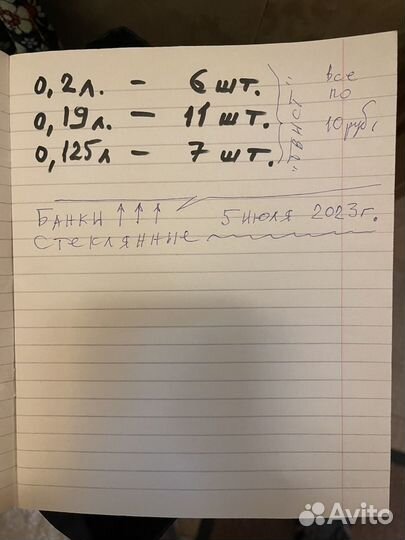 0,2л. – 6 шт.
0,19л. – 11 шт.
0,125л – 7 шт.
все
по
10 руб.
Банки ↑↑↑ 5 июля 2023г.
стеклянные
Avito